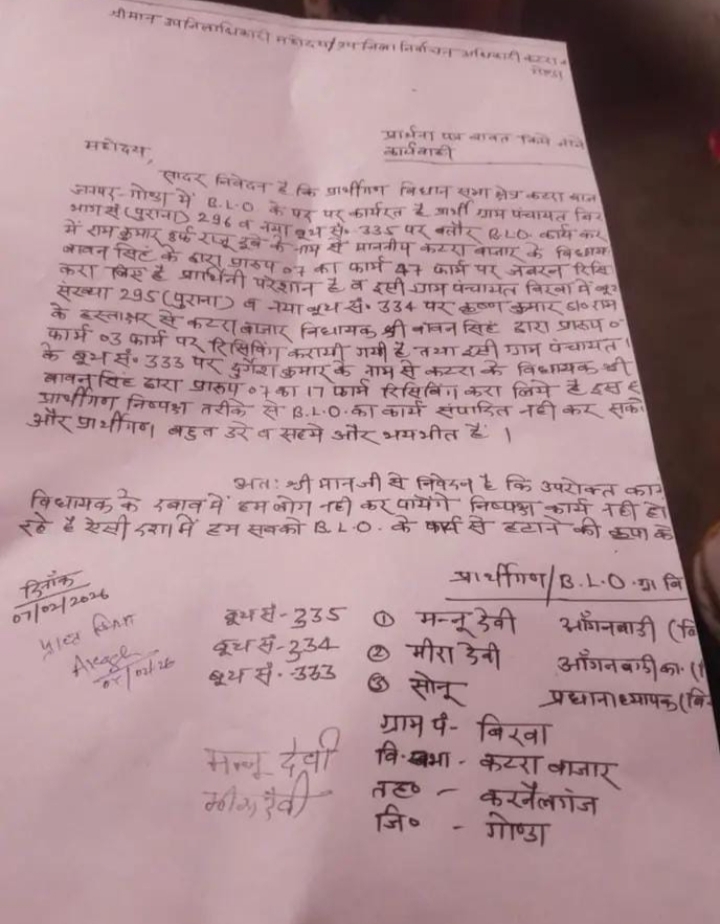 श्रीमान उपजिलाधिकारी महोदय/उप जिला निर्वाचन अधिकारी कटरा
गोण्डा
प्रार्थना पत्र बावत किये जाने
कार्यवाही
महोदय,
सादर निवेदन है कि प्रार्थीगण विधान सभा क्षेत्र कटरा बाजा
जनपद-गोण्डा में B.L.O. के पद पर कार्यरत है प्रार्थी ग्राम पंचायत बिर
भाग सं (पुराना) 296 व नया बूथ सं. 335 पर बतौर B.L.O. कार्य कर
में राम कुमार उर्फ राजू दूबे के नाम से माननीय कटरा बाजार के विधाय
बावन सिंह के द्वारा प्रारूप 07 का फार्म 47 फार्म पर जबरन रिसि
करा लिए है प्रार्थिनी परेशान है व इसी ग्राम पंचायत बिरवा में बू
संख्या 295 (पुराना) व नया बूथ सं. 334 पर कृष्ण कुमार S/o राम
के हस्ताक्षर से कटरा बाजार विधायक श्री बावन सिंह द्वारा प्रारूप 0
फार्म 03 फार्म पर रिसिविंग करायी गयी है तथा इसी ग्राम पंचायत
के बूथ सं. 333 पर दुर्गेश कुमार के नाम से कटरा के विधायक श्री
बावन सिंह द्वारा प्रारूप 07 का 17 फार्म रिसिविंग करा लिये है इस
प्रार्थीगण निष्पक्ष तरीके से B.L.O. का कार्य संपादित नही कर सक
और प्रार्थीगण बहुत डरे व सहमे और भयभीत हैं ।
अतः श्री मान जी से निवेदन है कि उपरोक्त का
विधायक के दबाव में हम लोग नही कर पायेंगे निष्पक्ष कार्य नही हो
रहे है ऐसी दशा में हम सबको B.L.O. के कार्य से हटाने की कृपा क
दिनाँक
07/02/2026
प्राप्त किया
07/02/26
प्रार्थीगण/B.L.O. ग्रा बि
बूथ सं- 335 ① मन्नू देवी आँगनबाड़ी (बि
बूथ सं- 334 ② मीरा देवी आँगनबाड़ी का. (
बूथ सं. -333 ③ सोनू प्रधानाध्यापक (बि
ग्राम पं- बिरवा
वि. सभा - कटरा बाजार
तह० - करनैलगंज
जि० - गोण्डा
मन्नू देवी
मीरा देवी